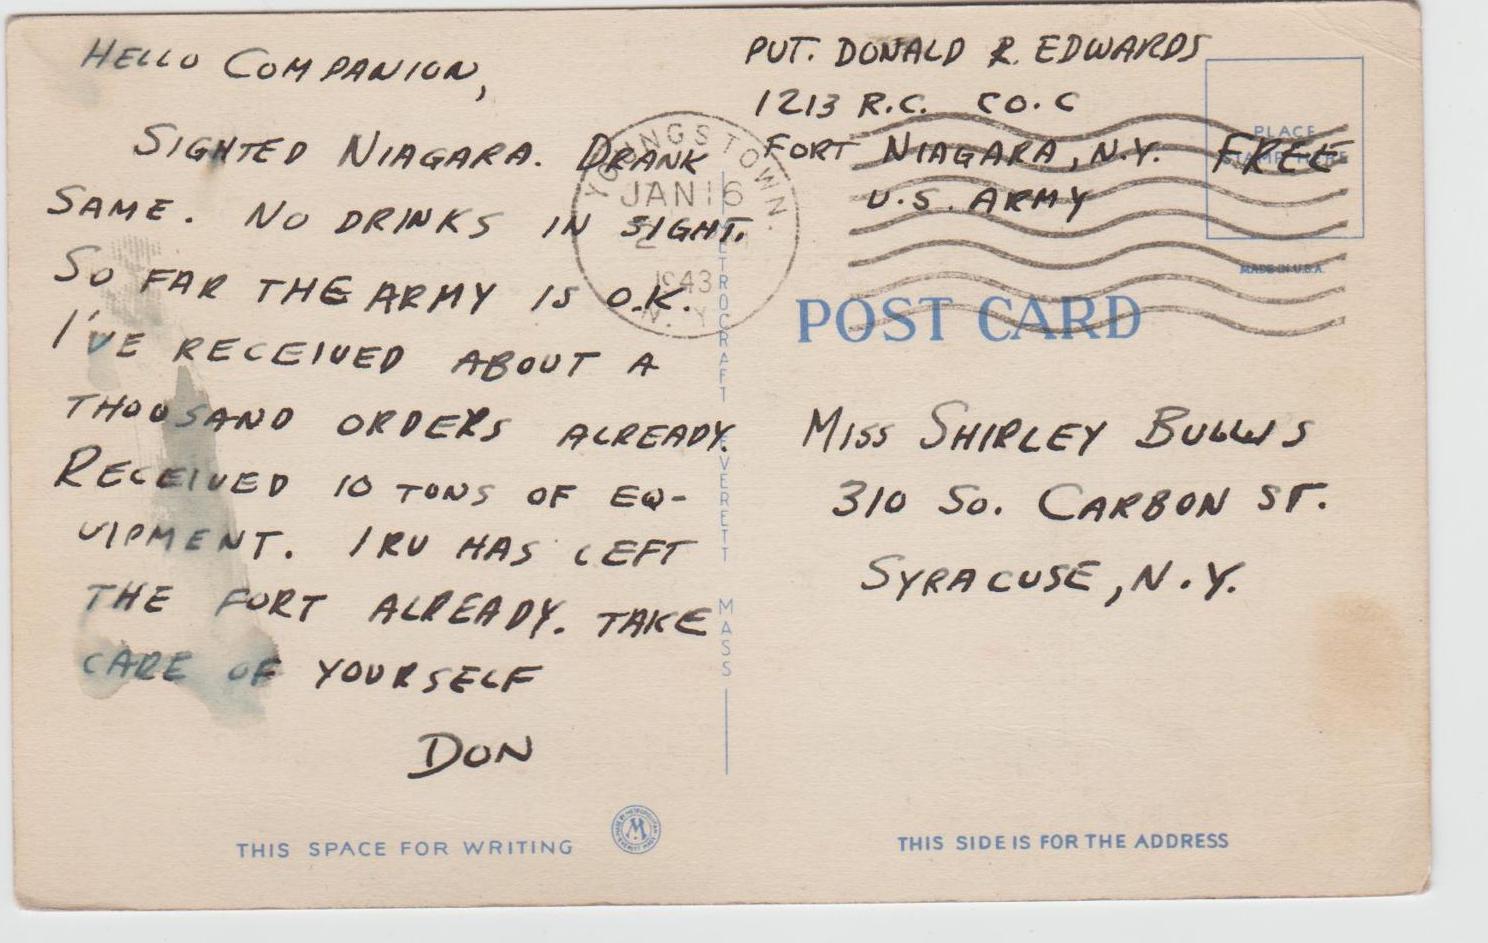 HELLO COMPANION,
SIGHTED NIAGARA. DRANK
SAME. NO DRINKS IN SIGHT.
SO FAR THE ARMY IS O.K.
I'VE RECEIVED ABOUT A
THOUSAND ORDERS ALREADY.
RECEIVED 10 TONS OF EQ-
UIPMENT. IRV HAS LEFT
THE FORT ALREADY. TAKE
CARE OF YOURSELF
DON
THIS SPACE FOR WRITING
M
YOUNGSTOWN.
JAN 16
1943
N.Y.
METROCRAFT EVERETT MASS
PVT. DONALD R. EDWARDS
1213 R.C. CO. C
FORT NIAGARA, N.Y.
U.S. ARMY
PLACE
STAMP HERE
FREE
MADE IN U.S.A.
POST CARD
MISS SHIRLEY BULLIS
310 SO. CARBON ST.
SYRACUSE, N.Y.
THIS SIDE IS FOR THE ADDRESS